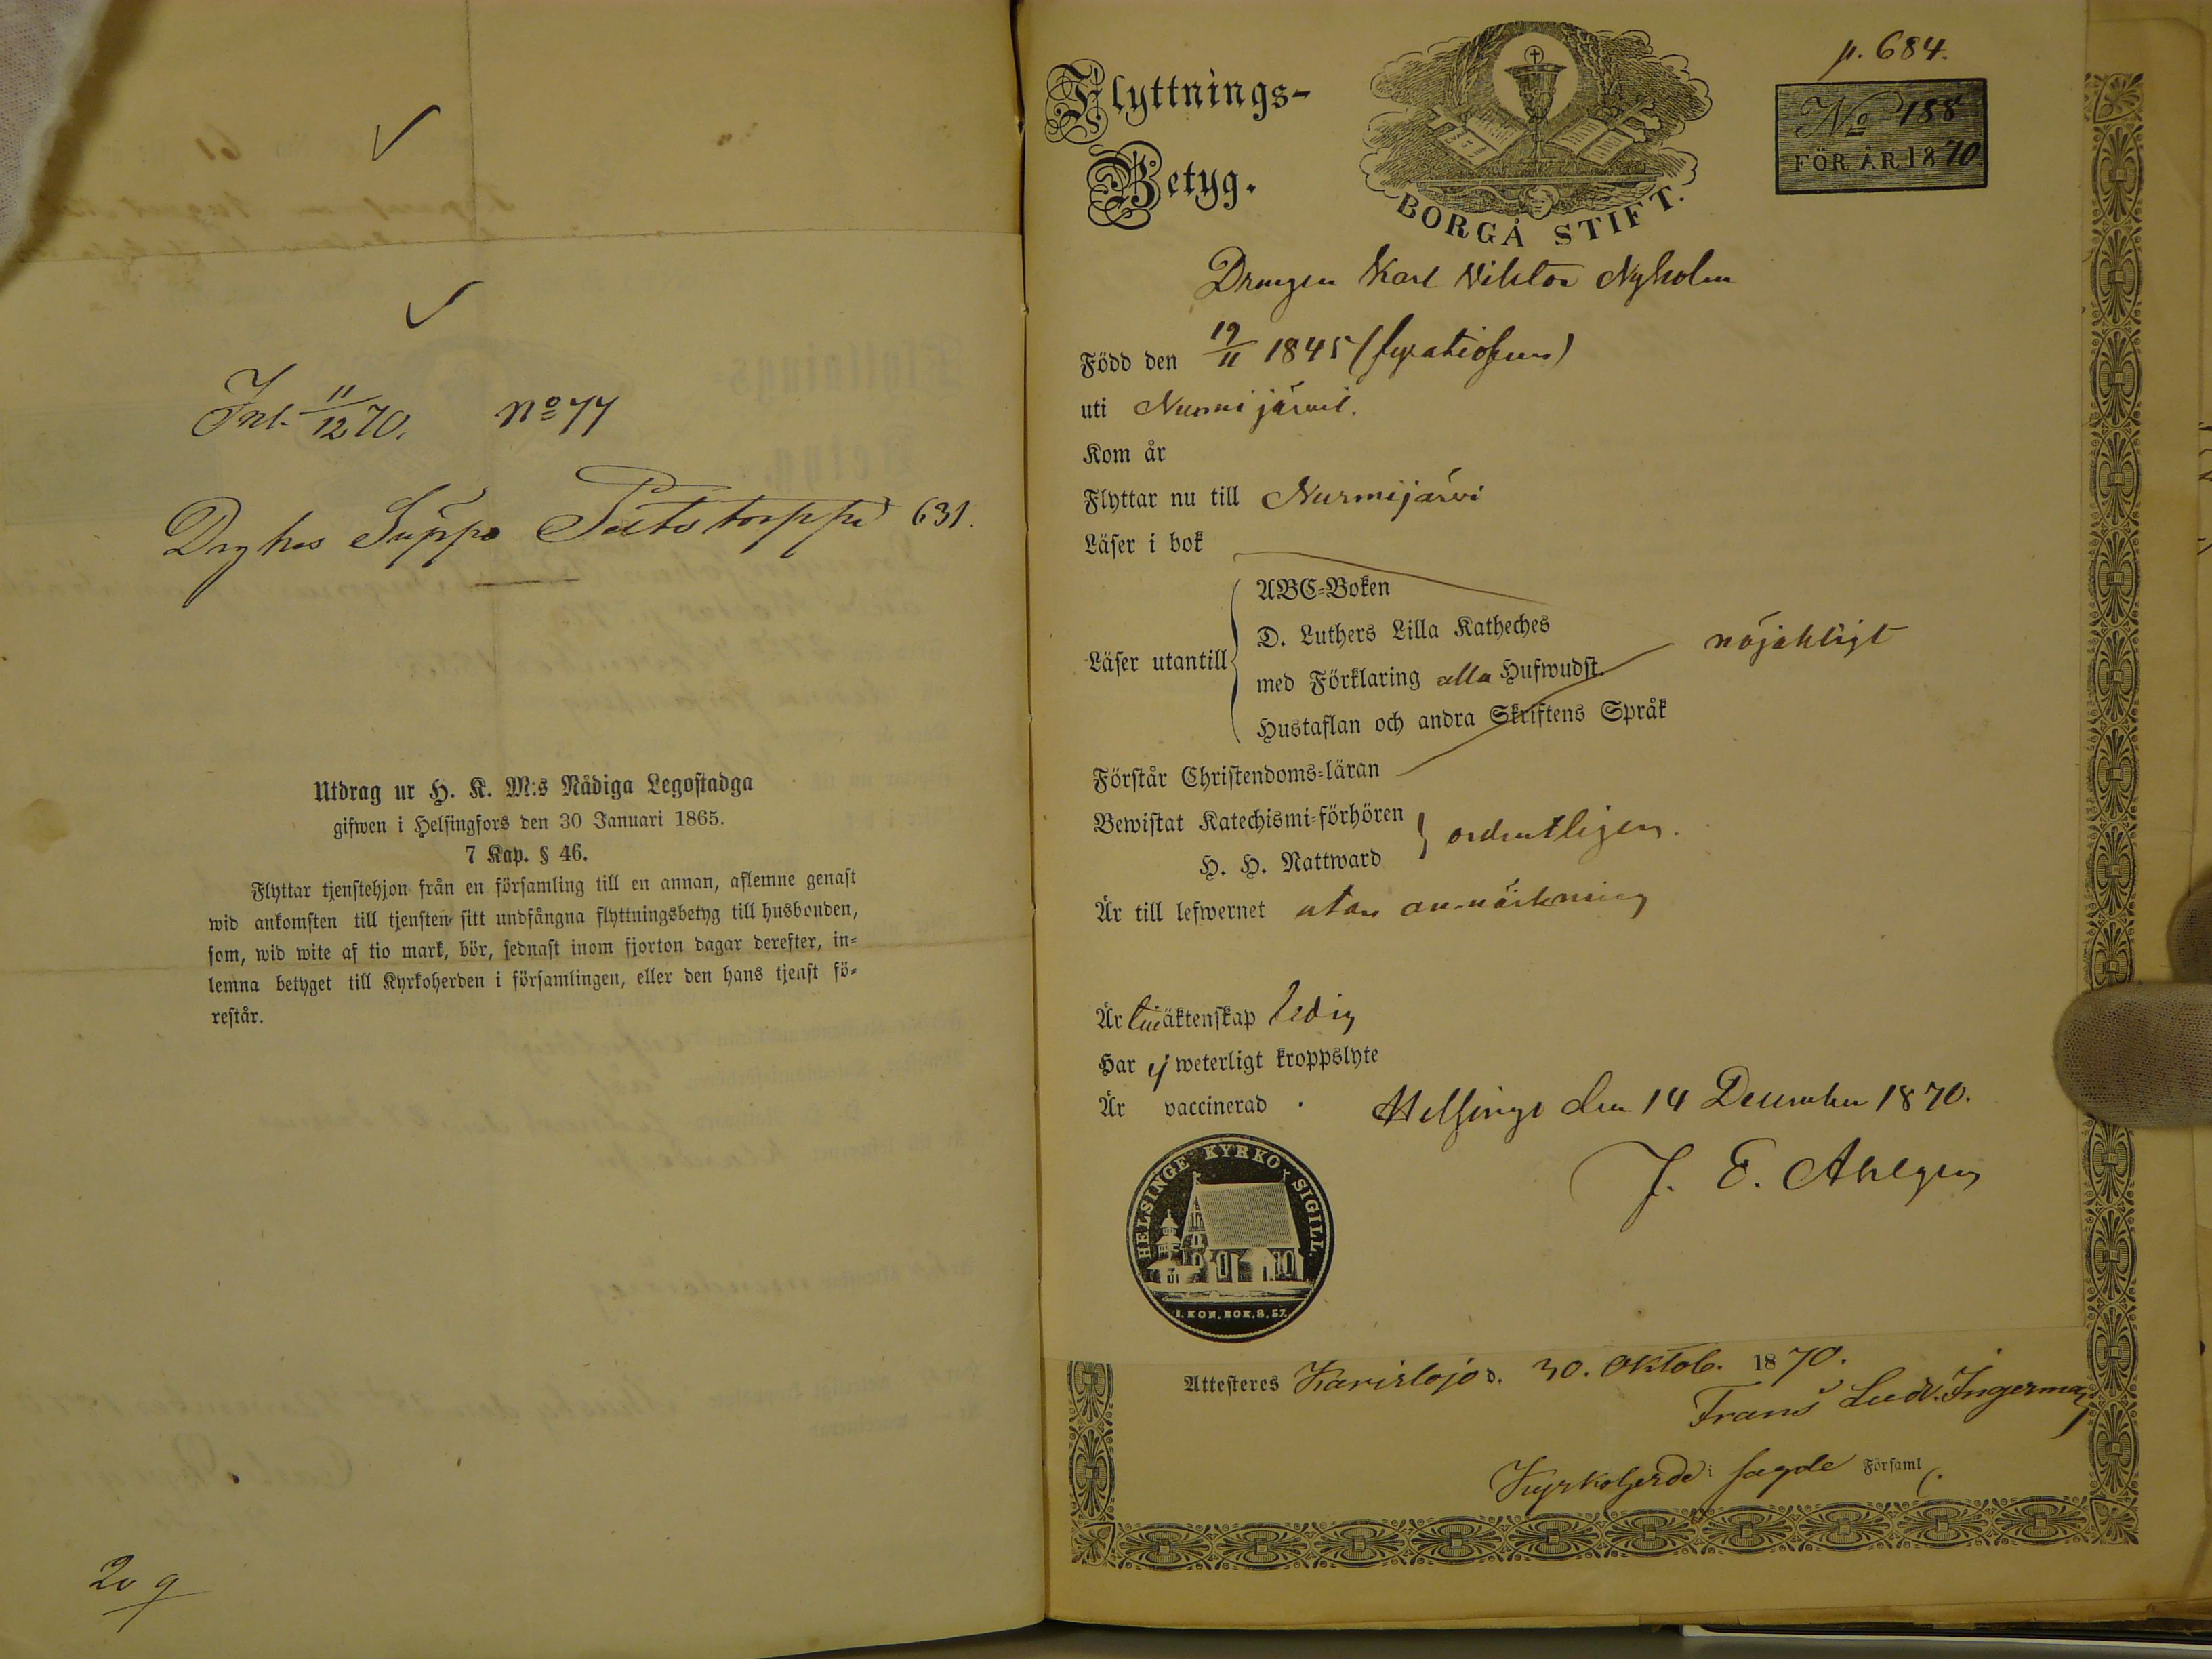 Inl. 11/12 70. No 77
Drg hos Seppo Tutotorppa 631.
Utdrag ur H. K. M:s Nådiga Legostadga
gifwen i Helsingfors den 30 Januari 1865.
7 Kap. § 46.
Flyttar tjenstehjon från en församling till en annan, aflemne genast
wid ankomsten till tjensten sitt undfångna flyttningsbetyg till husbonden,
som, wid wite af tio mark, bör, sednast inom fjorton dagar derefter, in-
lemna betyget till Kyrkoherden i församlingen, eller den hans tjenst fö-
restår.
p. 684.
Flyttnings-
Betyg.
BORGÅ STIFT.
No 188
FÖR ÅR 1870
Drengen Karl Viktor Nyholm
Född den 19/11 1845 (fyratiofem)
uti Nurmijärvi.
Kom år
Flyttar nu till Nurmijärvi
Läser i bok
ABC-Boken
D. Luthers Lilla Katheches
Läser utantill
med Förklaring alla Hufwudst.
Hustaflan och andra Skriftens Språk
nöjaktigt
Förstår Christendoms-läran
Bewistat Katechismi-förhören
H. H. Nattward
ordentligen.
Är till lefwernet utan anmärkning
Är till äktenskap ledig
Har ej weterligt kroppslyte
Är vaccinerad .
Helsinge den 14 December 1870.
J. E. Ahlgren
HELSINGE KYRKO SIGILL.
I. KON. BOK. 8. 57.
Attesteres Karislojo d. 30. Oktob. 1870.
Frans Ludv. Ingerman
Kyrkoherde i sagde Församl.